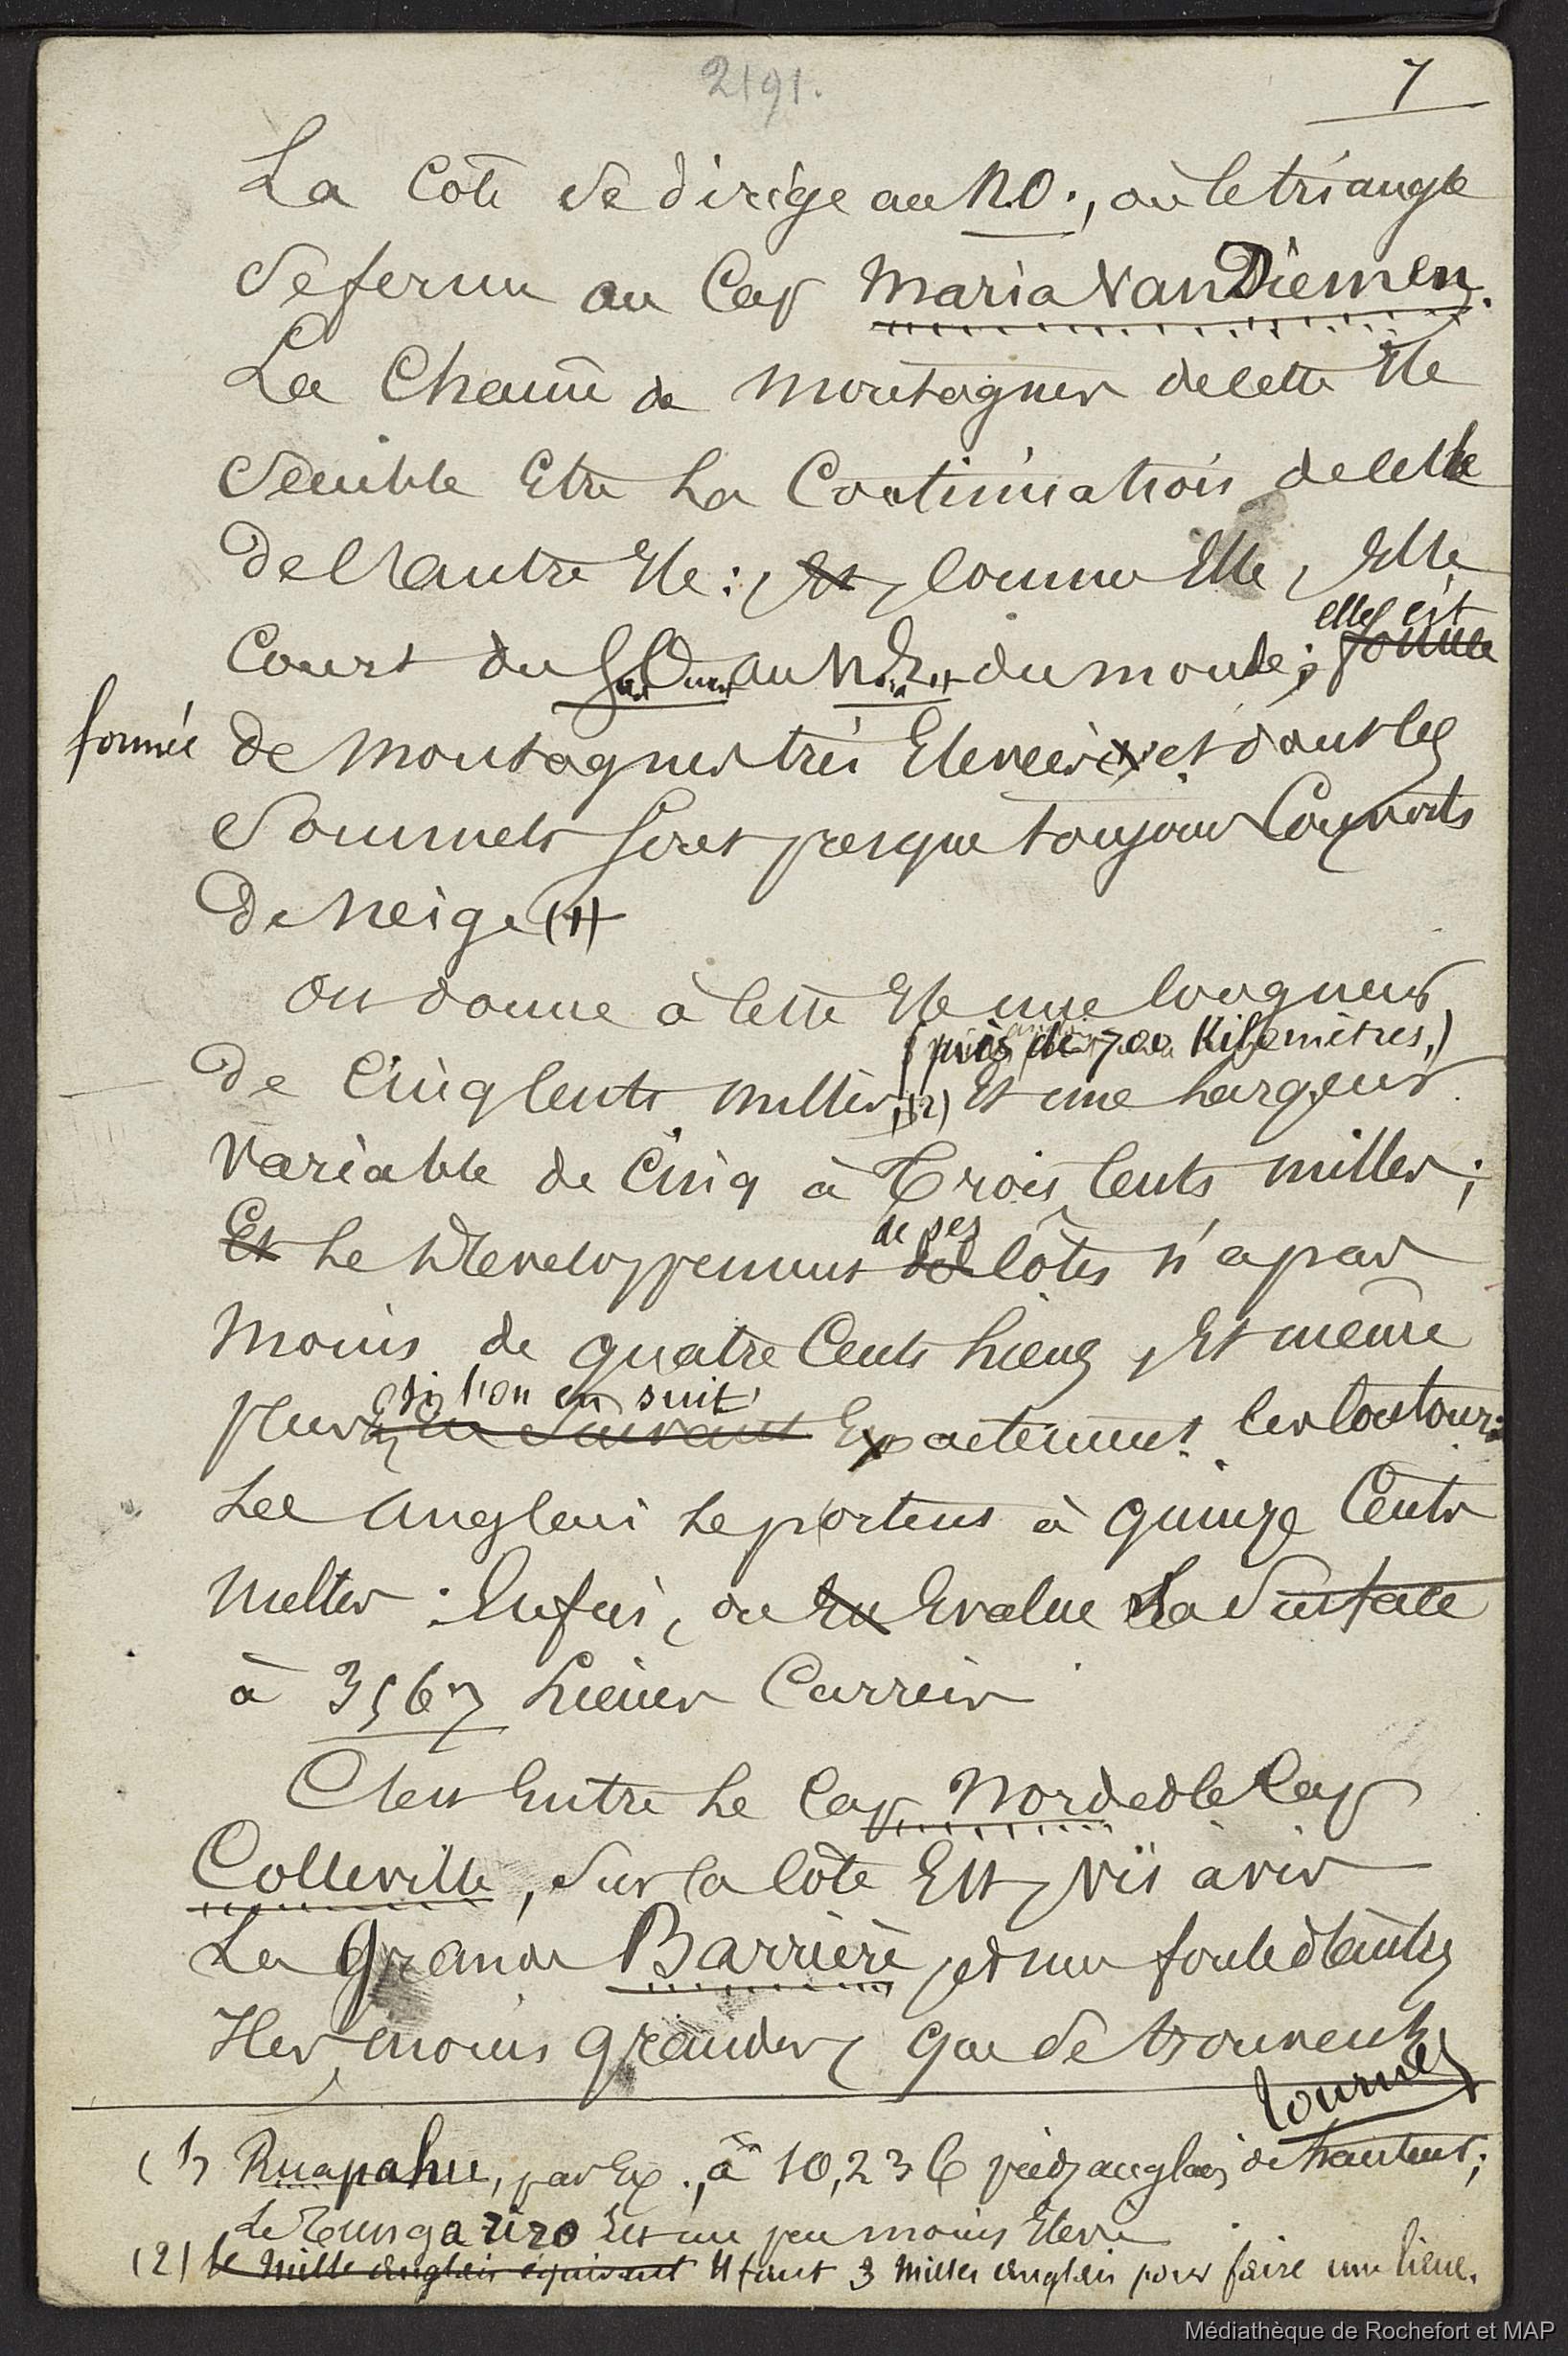 2191.
7
La Côte se dirige au N.O., où le triangle
se ferme au Cap Maria Van Diemen.
La Chaîne de Montagnes de cette Ile
Semble Etre La Continuation de celle
de l'autre Ile : Et, Comme Elle, Elle
elle est
Court du S. O. au N. E. du monde ; formée
formée de Montagnes très Elevées et dont les
Sommets sont presque toujours Couverts
de Neige (1)
On donne à Cette Ile une longueur
(près de 700 Kilomètres,)
de Cinq Cents milles, (2) Et une Largeur
Variable de Cinq à Trois Cents milles ;
de ses
Et Le Développement des Côtes n'a pas
Moins de quatre Cents Lieues, Et même
si l'on en suit
plus, En Suivant Exactement les Contours :
Les Anglais Le portent à quinze Cents
Milles : Enfin, on En Evalue La Surface
à 3567 Lieues Carrées
C'est Entre Le Cap Nord et le Cap
Colleville, Sur la Côte Est, vis à vis
La Grande Barrière, et une foule d'autres
Iles moins grandes, que se trouvent
tournez
(1) Ruapahu, par Ex., a 10,236 pieds anglais de hauteur ;
Le Tungariro Est un peu moins Elevé
(2) le Mille anglais équivaut Il faut 3 Milles anglais pour faire une lieue.
Médiathèque de Rochefort et MAP